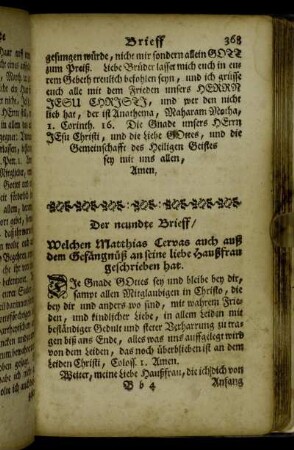 Brieff 363
gesungen würde, nicht mir sondern allein GOTT
zum Preiß. Liebe Brüder lasset mich euch in eu-
rem Gebeth treulich befohlen seyn, und ich grüsse
euch alle mit dem Frieden unsers HERRN
JESU CHRISTI, und wer den nicht
lieb hat, der ist Anathema, Maharam Motha,
1. Corinth. 16. Die Gnade unsers HErrn
JEsu Christi, und die Liebe GOttes, und die
Gemeinschafft des Heiligen Geistes
sey mit uns allen,
Amen.
Der neundte Brieff/
Welchen Matthias Cervas auch auß
dem Gefängnüß an seine liebe Haußfrau
geschrieben hat.
DIe Gnade GOttes sey und bleibe bey dir,
sampt allen Mitglaubigen in Christo, die
bey dir und anders wo sind, mit wahrem Frie-
den, und kindlicher Liebe, in allem Leiden mit
beständiger Gedult und steter Verharrung zu tra-
gen biß ans Ende, alles was uns auffgelegt wird
von dem Leiden, das noch überblieben ist an dem
Leiden Christi, Coloss. 1. Amen.
Weiter, meine Liebe Haußfrau, die ich dich von
B b 4 Anfang